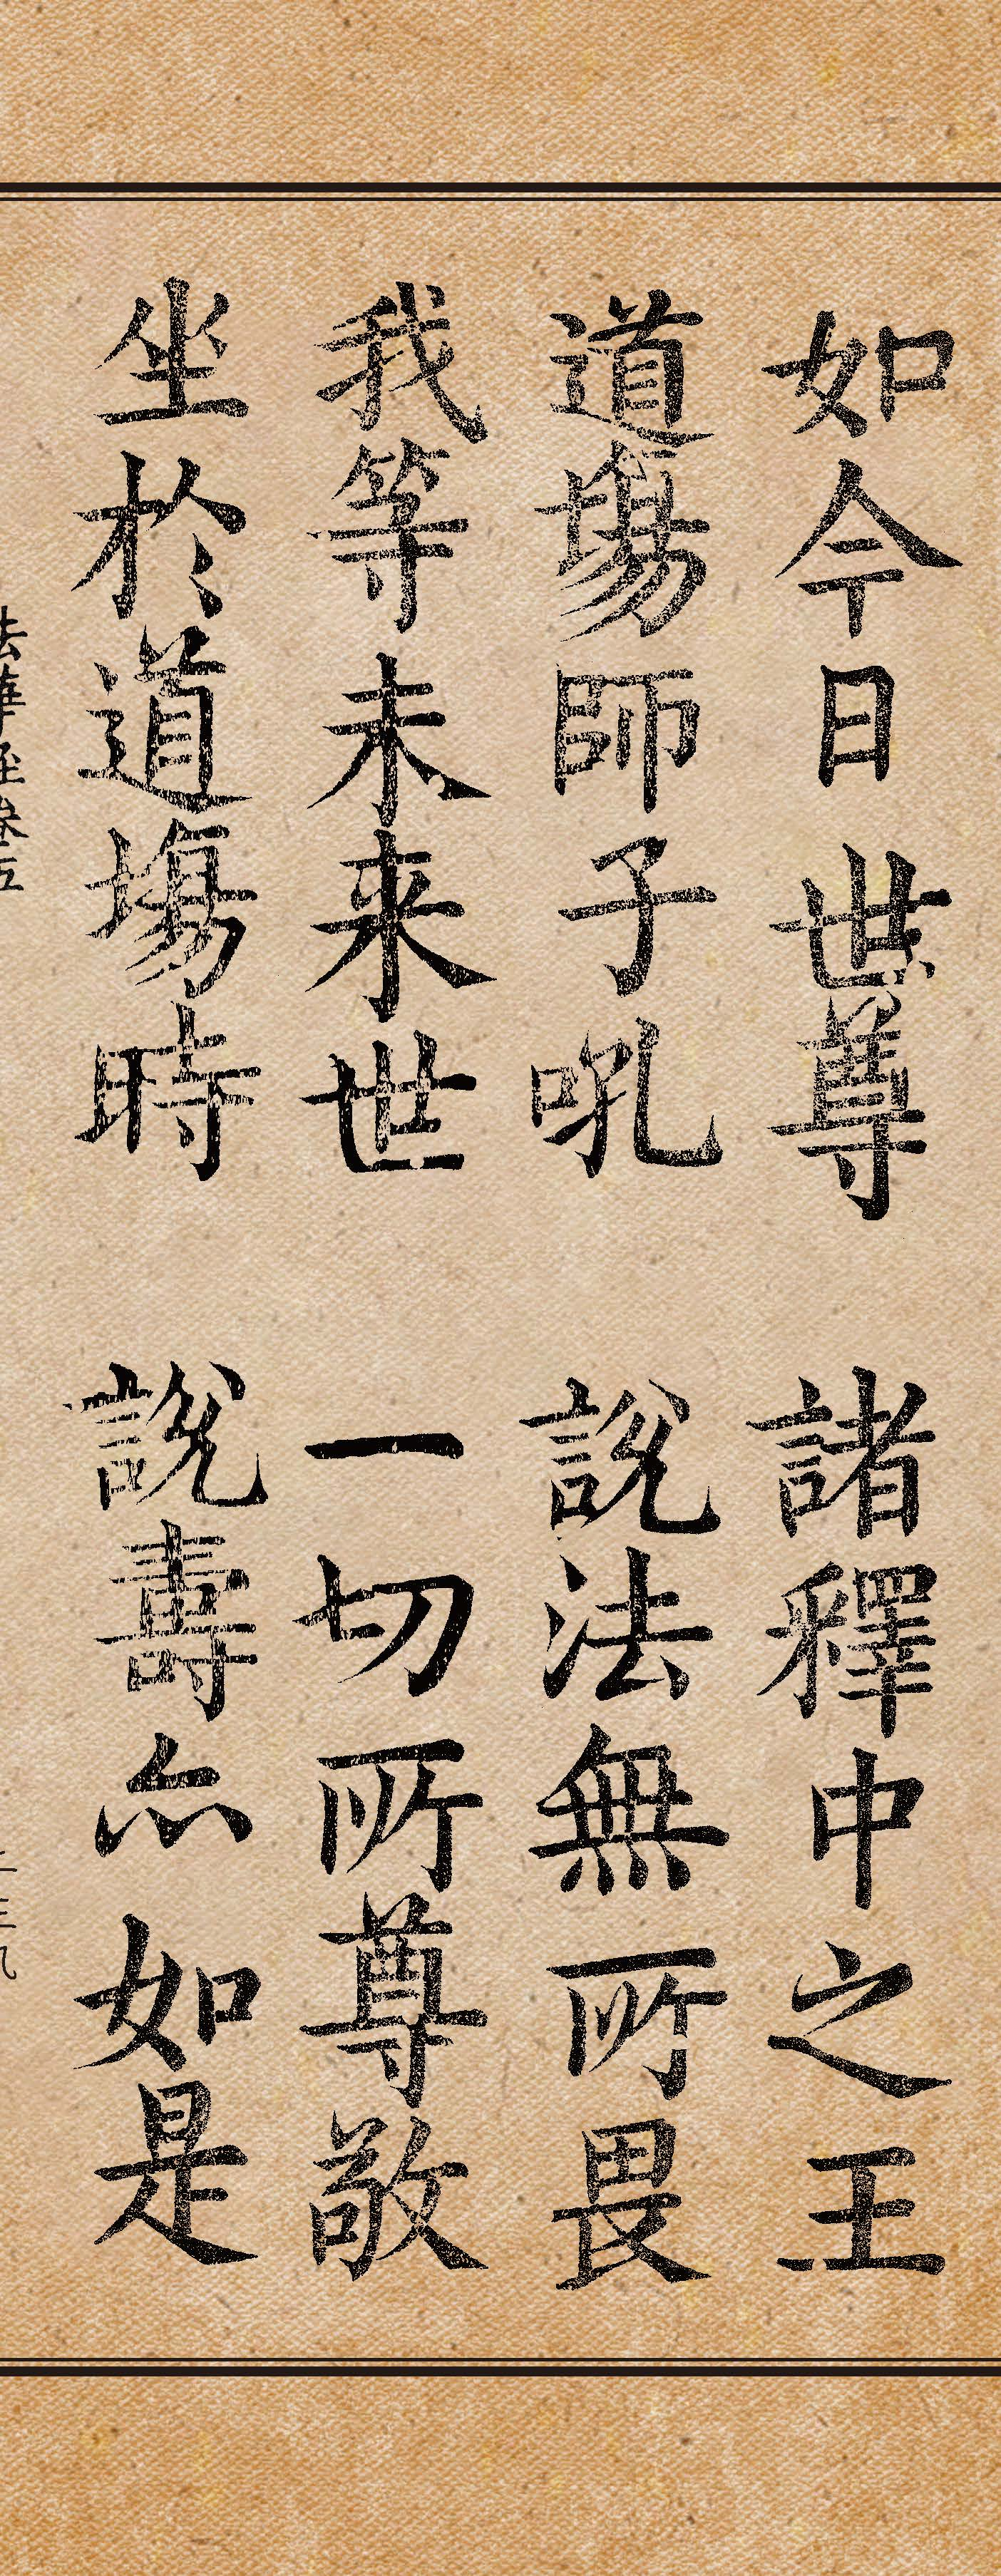 如今日世尊 諸釋中之王
道場師子吼 說法無所畏
我等未来世 一切所尊敬
坐於道場時 說壽亦如是
法華経巻五
二三九